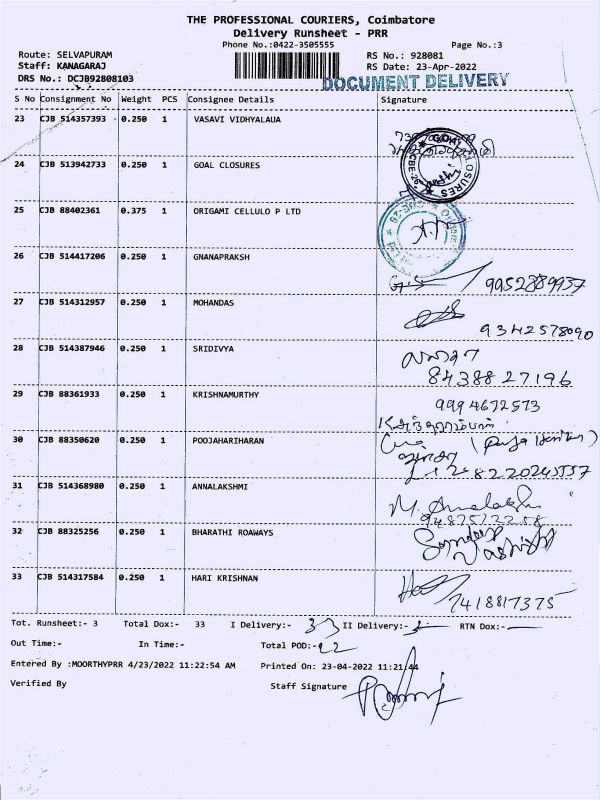 THE PROFESSIONAL COURIERS, Coimbatore
Delivery Runsheet - PRR
Phone No.:0422-3505555
Page No.:3
Route: SELVAPURAM
RS No.: 928081
Staff: KANAGARAJ
RS Date: 23-Apr-2022
DRS No.: DCJB92808103
DOCUMENT DELIVERY
S No Consignment No Weight PCS Consignee Details Signature
23 CJB 514357393 0.250 1 VASAVI VIDHYALAUA
24 CJB 513942733 0.250 1 GOAL CLOSURES
25 CJB 88402361 0.375 1 ORIGAMI CELLULO P LTD
26 CJB 514417206 0.250 1 GNANAPRAKSH
9952889937
27 CJB 514312957 0.250 1 MOHANDAS
9342578090
28 CJB 514387946 0.250 1 SRIDIVYA
84388 27196
29 CJB 88361933 0.250 1 KRISHNAMURTHY
9994672573
30 CJB 88350620 0.250 1 POOJAHARIHARAN
8220245557
31 CJB 514368980 0.250 1 ANNALAKSHMI
M. Annalakshmi
32 CJB 88325256 0.250 1 BHARATHI ROAWAYS
33 CJB 514317584 0.250 1 HARI KRISHNAN
7418817375
Tot. Runsheet:- 3 Total Dox:- 33 I Delivery:- 33 II Delivery:- RTN Dox:-
Out Time:- In Time:- Total POD:-
Entered By :MOORTHYPRR 4/23/2022 11:22:54 AM Printed On: 23-04-2022 11:21:44
Verified By Staff Signature